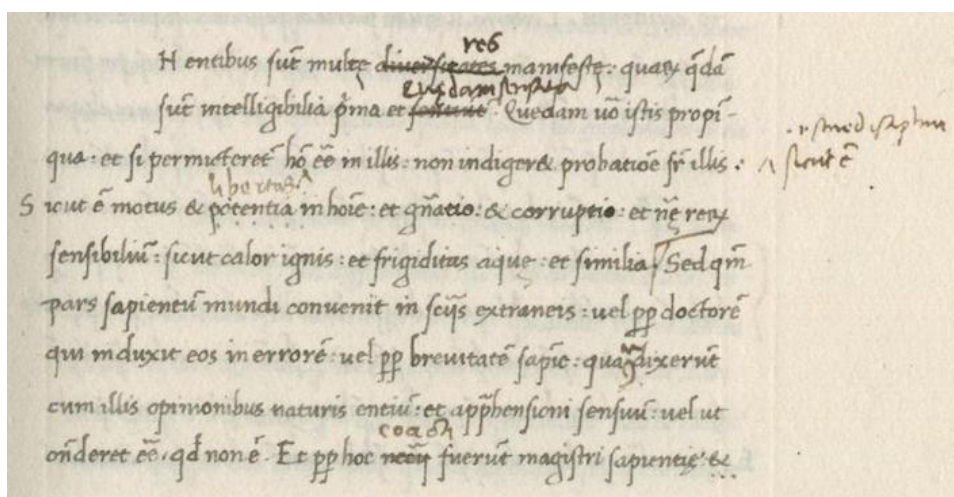 res
N entibus sūt multę diuersitates manifestę: quaꝝ q̄dā
eiusdam
sūt intelligibilia p̄ma et. Quedam uō istis propi-
qua: et si permicteret̄ hō ēē in illis: non indigeret probatiōe sr̄ illis:
sicut ē
libertas
S icut ē motus & potentia in hoīe: et gn̄atio: & corruptio: et nę̄ reꝝ
sensibiliū: sicut calor ignis: et frigiditas aque: et similia/ Sed qm̄
pars sapientū mundi convenit in sciīs extraneis: uel pp̄ doctorē
qui induxit eos in errorē: uel pp̄ brevitatē sapiē: dixerūt
cum illis opinionibus naturis entiū: et app̄hensioni sensuū: uel ut
coacti
on̄deret ēē, qđ non ē. Et pp̄ hoc fuerūt magistri sapientię: &